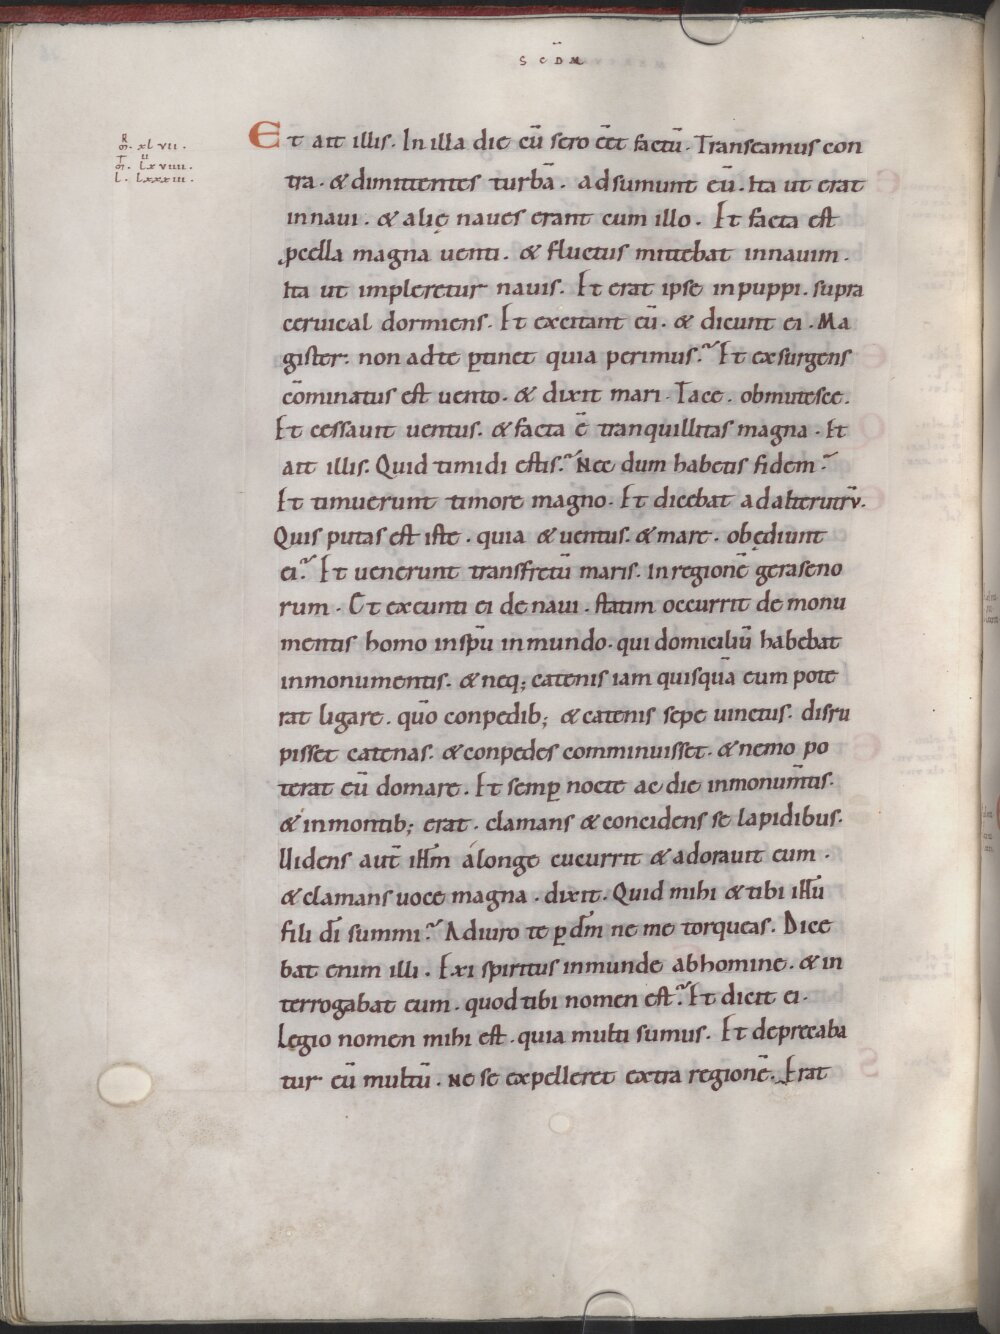 SCD̄M
R
m̄. xlvii.
T u
m̄. lxviiii.
L. lxxxiii.
Et ait illis. In illa die cū sero eēt factū. Transeamus con
tra. & dimittentes turbā. adsumunt eū. Ita ut erat
in naui. & alię naues erant cum illo. Et facta est
pcella magna uenti. & fluctus mittebat in nauim.
Ita ut impleretur nauis. Et erat ipse in puppi. supra
ceruical dormiens. Et excitant eū. & dicunt ei. Ma
gister: non ad te ꝑtinet quia perimus? Et exsurgens
cōminatus est uento. & dixit mari. Tace. obmutesce.
Et cessauit uentus. & facta ē tranquillitas magna. Et
ait illis. Quid timidi estis? Nec dum habetis fidem?
Et timuerunt timore magno. Et dicebat ad alterutrū.
Quis putas est iste. quia & uentus. & mare. obędiunt
ei? Et uenerunt transfretū maris. in regionē geraseno
rum. Et exeunti ei de naui. statim occurrit de monu
mentis homo in spū inmundo. qui domiciliū habebat
in monumentis. & neq; catenis iam quisquā eum pote
rat ligare. qūo conpedib; & catenis sepe uinctus. disru
pisset catenas. & conpedes comminuisset. & nemo po
terat eū domare. Et semꝑ nocte ac die in monumtīs.
& in montib; erat. clamans & concidens se lapidibus.
Uidens aut̄ ihm̄ a longe cucurrit & adorauit eum.
& clamans uoce magna. dixit. Quid mihi & tibi ihū
fili dī summi? Adiuro te ꝑ dm̄ ne me torqueas. Dice
bat enim illi. Exi spiritus inmunde ab homine. & in
terrogabat eum. quod tibi nomen est? Et dicit ei.
Legio nomen mihi est. quia multi sumus. Et deprecaba
tur eū multū. ne se expelleret extra regionē. Erat